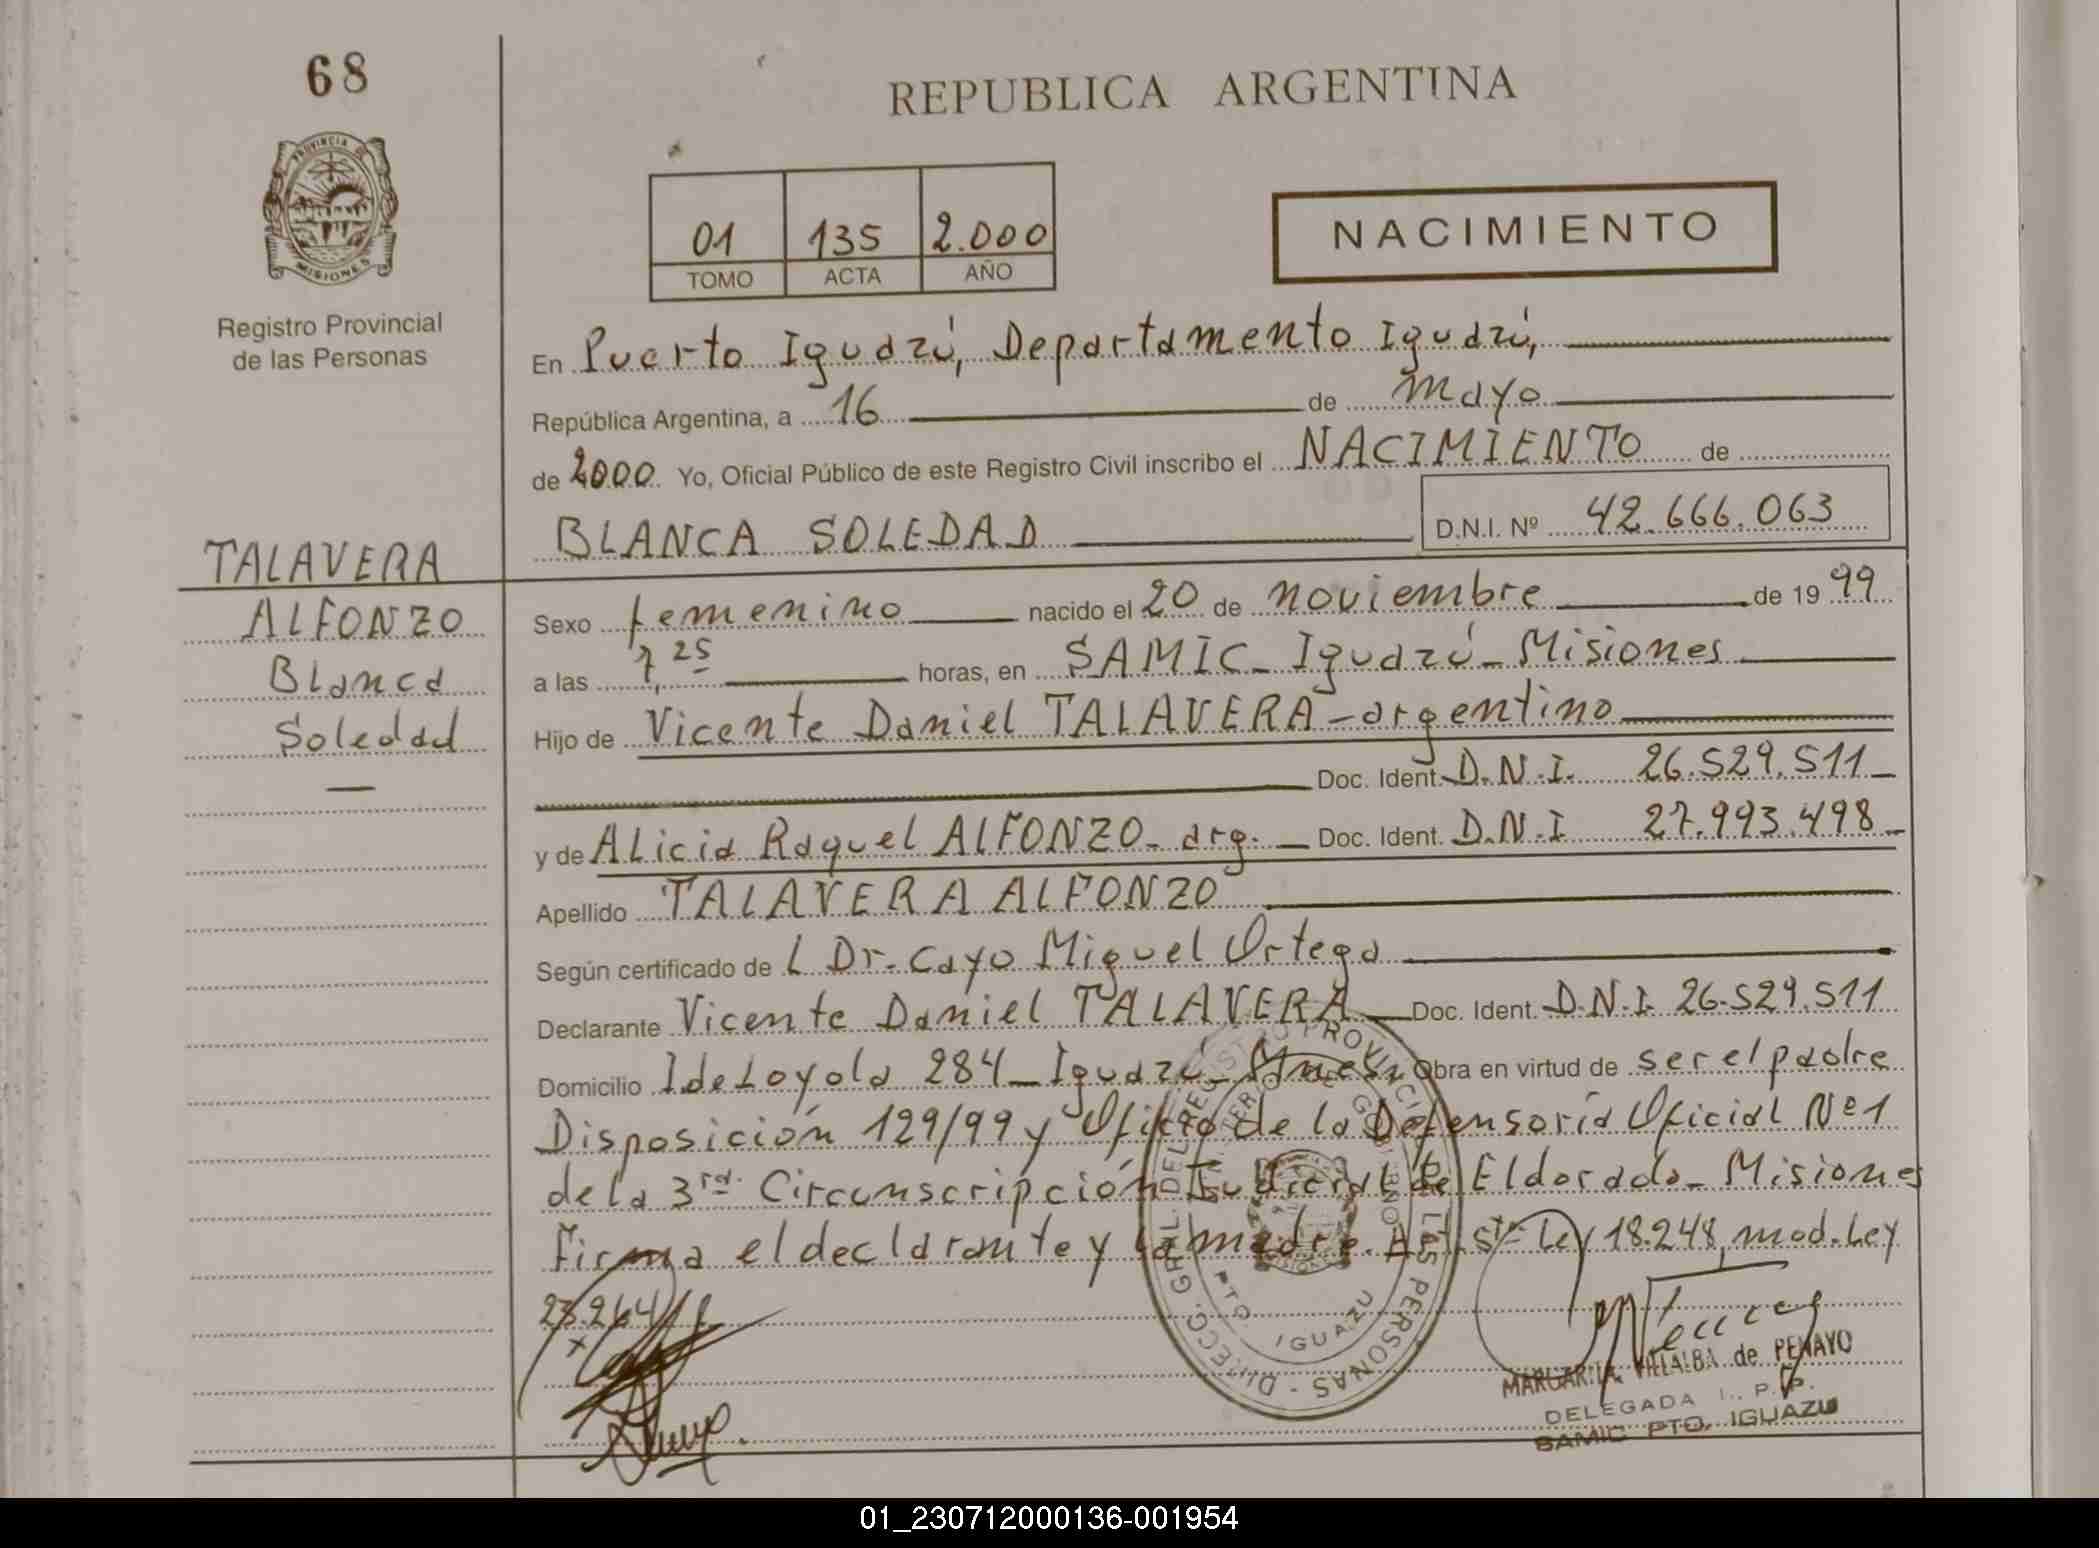 68
REPUBLICA ARGENTINA
PROVINCIA DE
MISIONES
Registro Provincial
de las Personas
01 135 2.000
TOMO ACTA AÑO
NACIMIENTO
En Puerto Iguazú, Departamento Iguazú,
República Argentina, a 16 de mayo
de 2000 Yo, Oficial Público de este Registro Civil inscribo el NACIMIENTO de
BLANCA SOLEDAD D.N.I. Nº 42.666.063
TALAVERA
ALFONZO
Blanca
Soledad
Sexo femenino nacido el 20 de noviembre de 19 99
a las 7,25 horas, en SAMIC - Iguazú - Misiones
Hijo de Vicente Daniel TALAVERA - argentino
Doc. Ident. D.N.I. 26.529.511
y de Alicia Raquel ALFONZO - arg. Doc. Ident. D.N.I 27.993.498
Apellido TALAVERA ALFONZO
Según certificado de L Dr. Cayo Miguel Ortega
Declarante Vicente Daniel TALAVERA Doc. Ident. D.N.I. 26.529.511
Domicilio I de Loyola 284 - Iguazú - Mnes. Obra en virtud de ser el padre
Disposición 129/99 y Oficio de la Defensoría Oficial Nº 1
de la 3ra. Circunscripción Judicial de Eldorado - Misiones
Firma el declarante y la madre. Art. 5to Ley 18.248, mod. Ley
23.264
DIRECC. GRAL. DEL REGISTRO PROVINCIAL DE LAS PERSONAS
MINISTERIO DE GOBIERNO
MISIONES
PTO IGUAZU
MARGARITA VILLALBA de PENAYO
DELEGADA
SAMIC PTO. IGUAZU
01_230712000136-001954